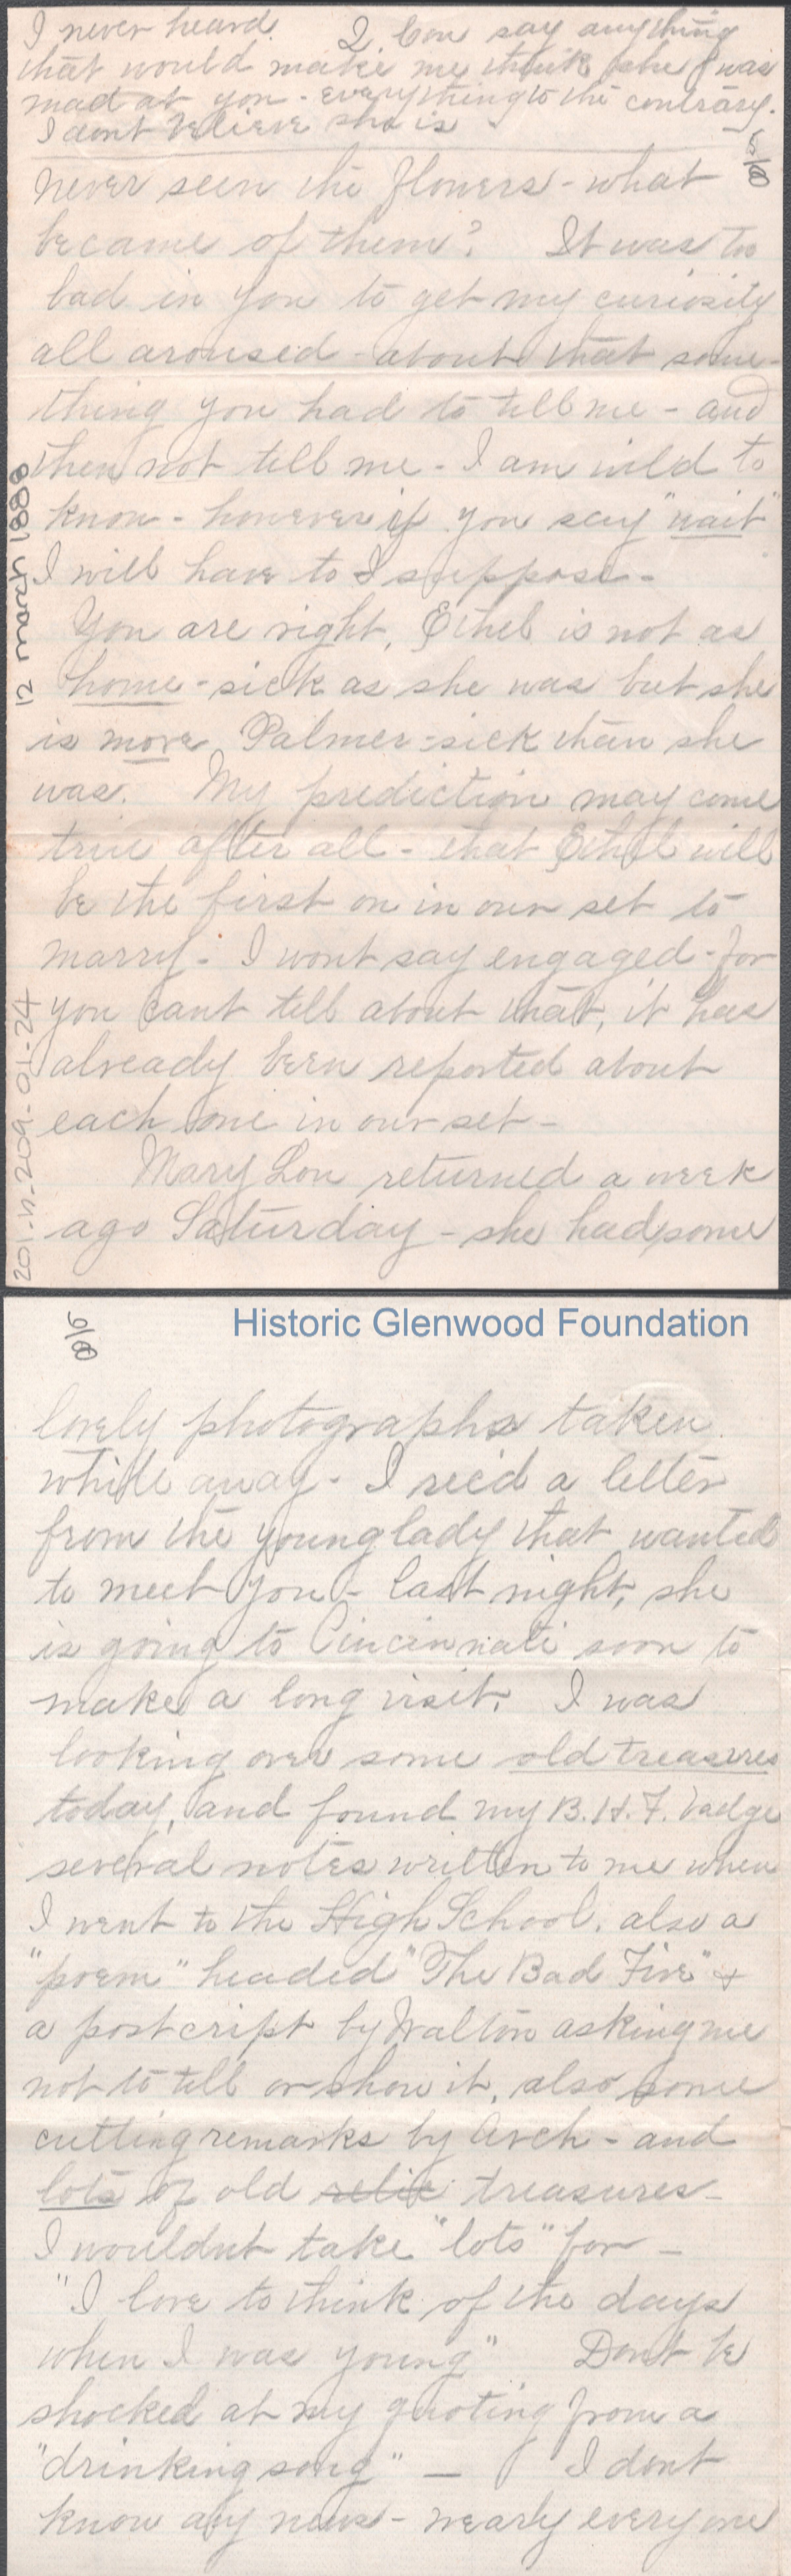 I never heard. Q. Lou say anything
that would make me think she was
mad at you - everything to the contrary.
I dont believe she is
5/8
never seen the flowers - what
became of them? It was too
bad in you to get my curiosity
all aroused - about that some-
thing you had to tell me - and
then not tell me - I am wild to
know - however if you say "wait"
I will have to I suppose -
You are right, Ethel is not as
home-sick as she was but she
is more Palmer-sick than she
was. My prediction may come
true after all - that Ethel will
be the first on in our set to
marry - I wont say engaged - for
you cant tell about that, it has
already been reported about
each one in our set -
Mary Lou returned a week
ago Saturday - she had some
12 march 1888
201-H-209-01-24
6/8
Historic Glenwood Foundation
lovely photographs taken
while away - I rec'd a letter
from the young lady that wanted
to meet you - last night, she
is going to Cincinnati soon to
make a long visit. I was
looking over some old treasures
today, and found my B.H.F. badge
several notes written to me when
I went to the High School, also a
"poem" headed "The Bad Five" &
a postcript by Walton asking me
not to tell or show it, also some
cutting remarks by Arch - and
lots of old relic treasures -
I wouldnt take "lots" for -
"I love to think of the days
when I was young" Dont be
shocked at my quoting from a
"drinking song" - I dont
know any news - nearly everyone